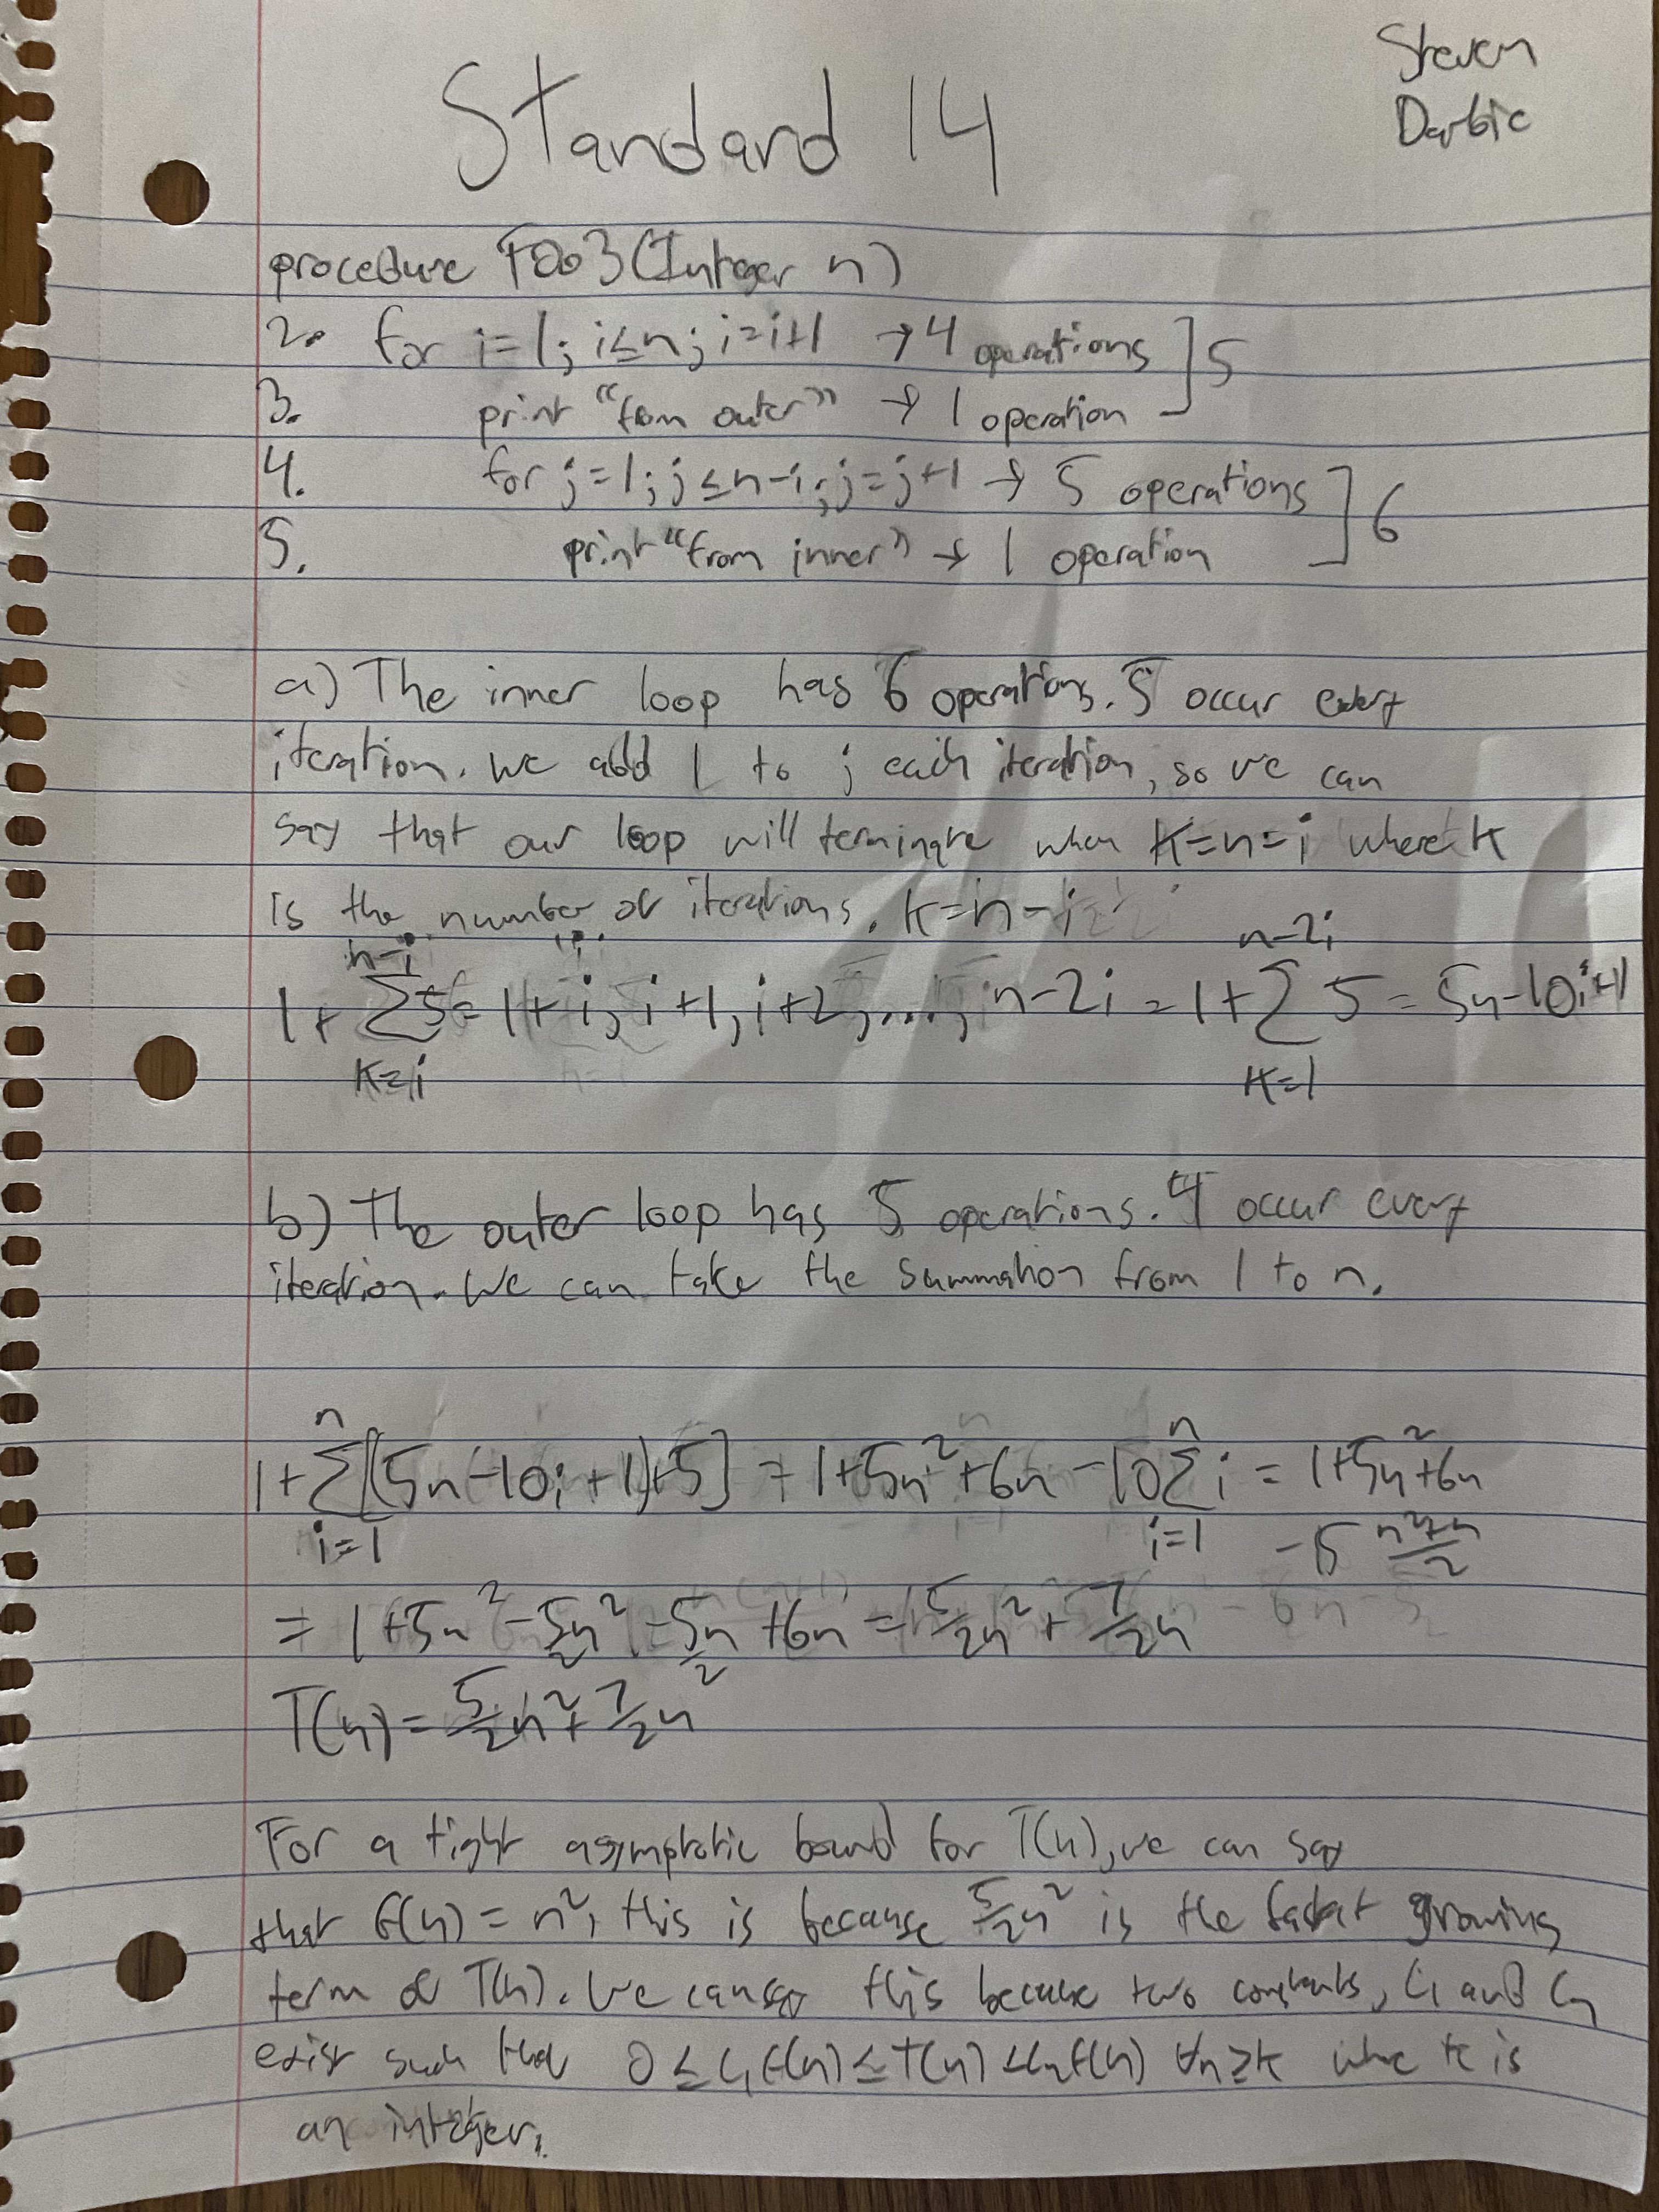 Steven
Darbie
Standard 14
procedure Foo3(Integer n)
2. for i=1; i≤n; i=i+1 → 4 operations ] 5
3. print "from outer" → 1 operation
4. for j=1; j≤n-i; j=j+1 → 5 operations ] 6
5. print "from inner" → 1 operation
a) The inner loop has 6 operations. 5 occur every
iteration. We add 1 to j each iteration, so we can
say that our loop will terminate when K=n=i where K
is the number of iterations. K=n-i
1+ n-i Σ K=i 5= 1+i, i+1, i+2, ..., n-2i = 1+ n-2i Σ K=1 5 = 5n-10i+1
b) The outer loop has 5 operations. 4 occur every
iteration. We can take the summation from 1 to n.
1+ n Σ i=1 [(5n-10i+1)+5] = 1+5n²+6n -10 n Σ i=1 i = 1+5n²+6n
-5 n²+n/2
= 1+5n²-5/2n²-5/2n+6n = 5/2n²+7/2n
T(n)=5/2n²+7/2n
For a tight asymptotic bound for T(n), we can say
that f(n)=n², this is because 5/2n² is the fastest growing
term of T(n). We can say this because two constants, C1 and C2
exist such that 0≤C1f(n)≤T(n)≤C2f(n) ∀n≥k where k is
an integer.